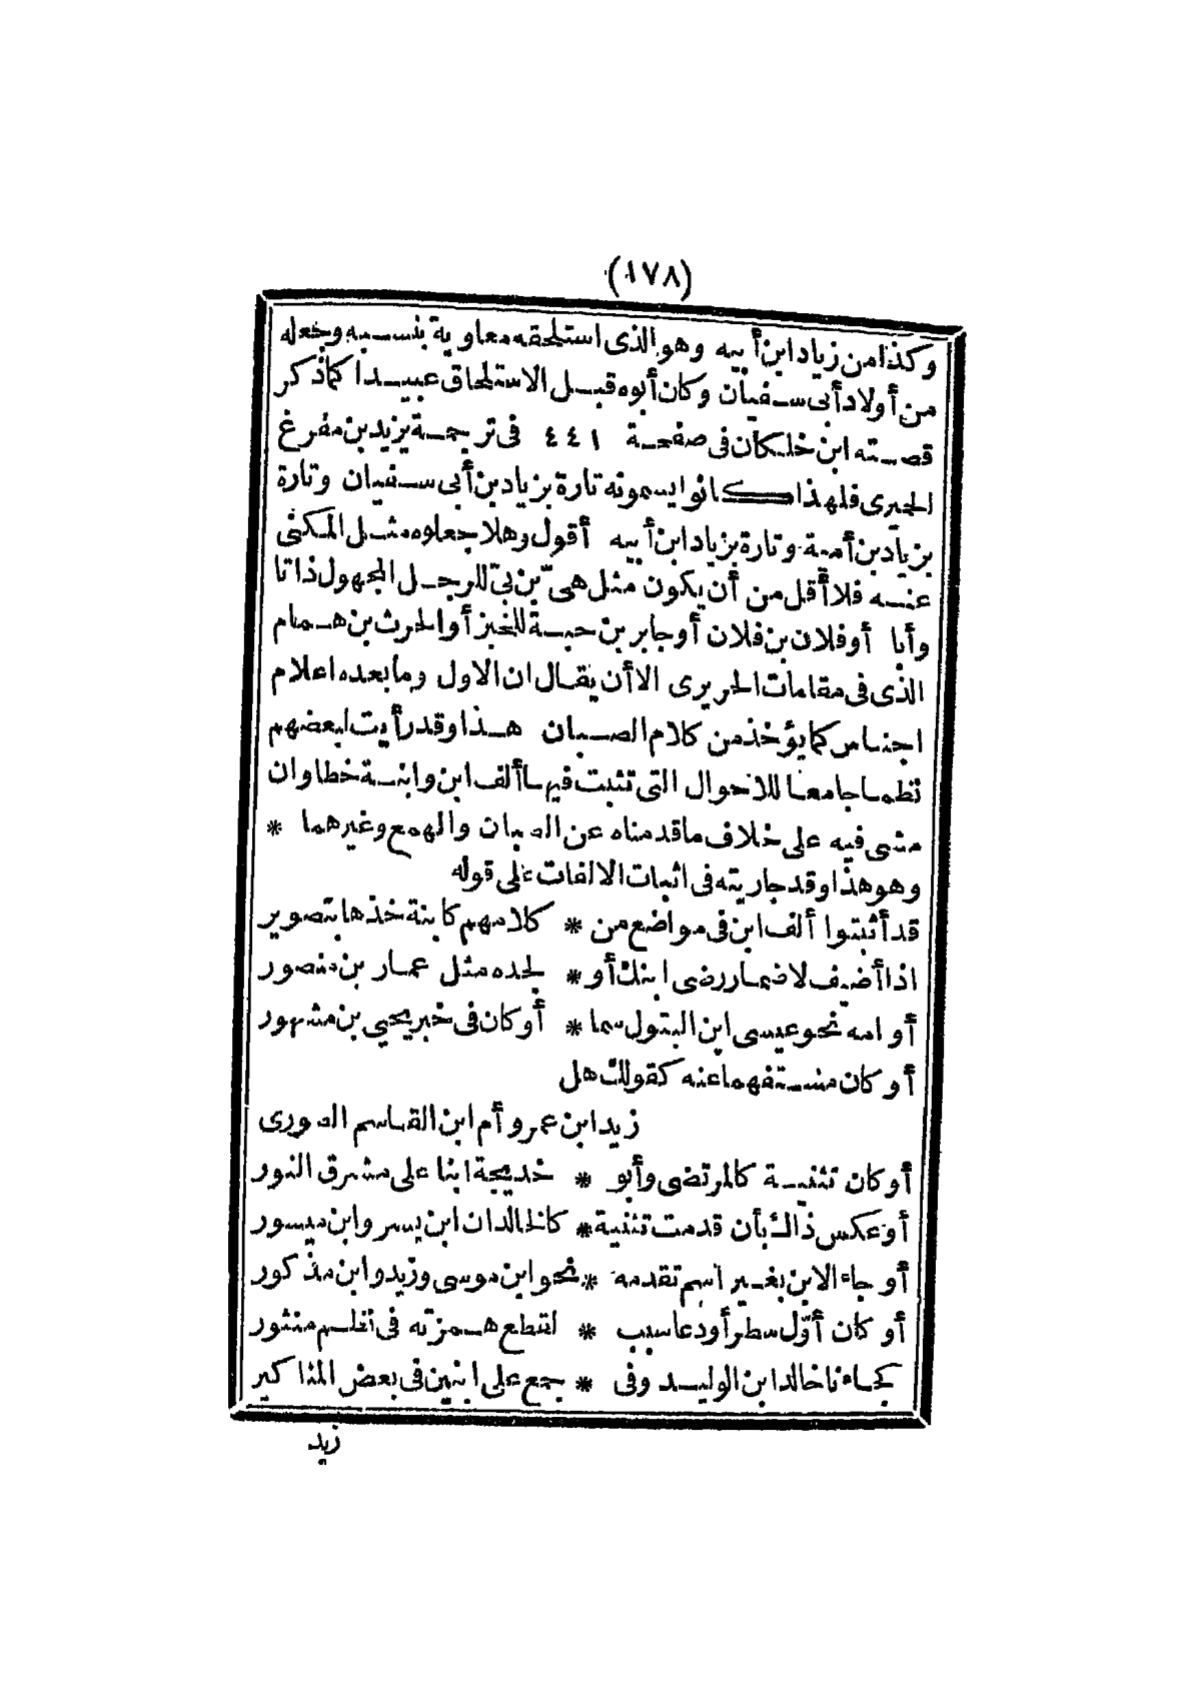 (١٧٨)
وكذا من زياد ابن أبيه وهو الذى استلحقه معاوية بنسبه وجعله
من أولاد أبى سفيان وكان أبوه قبل الاستلحاق عبيدا كما ذكر
قصته ابن خلكان فى صفحة ٤٤١ فى ترجمة يزيد بن مفرغ
الحميرى فلهذا كانوا يسمونه تارة بزياد بن أبى سفيان وتارة
بزياد بن أمية وتارة بزياد ابن أبيه أقول وهلا جعلوه مثل المكنى
عنه فلا أقل من أن يكون مثل هىّ بن بىّ للرجل المجهول ذاتا
وأبا أو فلان بن فلان أو جابر بن حبة للخبز أو الحرث بن همام
الذى فى مقامات الحريرى الا أن يقال ان الاول وما بعده اعلام
اجناس كما يؤخذ من كلام الصبان هذا وقد رأيت لبعضهم
نظما جامعا للاحوال التى تثبت فيها ألف ابن وابنة خطا وان
مشى فيه على خلاف ما قدمناه عن الصبان والهمع وغيرهما *
وهو هذا وقد جاريته فى اثبات الالفات على قوله
قد أثبتوا ألف ابن فى مواضع من * كلامهم كابنة خذها بتصوير
اذا أضيف لاضمار رضى ابنك أو * لجده مثل عمار بن منصور
أو امه نحو عيسى ابن البتول سما * أو كان فى خبر يحيي بن مشهور
أو كان مستفهما عنه كقولك هل
زيد ابن عمرو أم ابن القاسم الصورى
أو كان تثنية كالمرتضى وأبو * خديجة ابنا على مشرق النور
أو عكس ذاك بأن قدمت تثنية * كالخالدان ابن يسر وابن ميسور
أو جاء الابن بغير اسم تقدمه * نحو ابن موسى وزيد وابن مذكور
أو كان أوّل سطر أو دعا سبب * لقطع همزته فى نظم منثور
كجاءنا خالد ابن الوليد وفى * جمع على ابنين فى بعض المذاكير
زيد